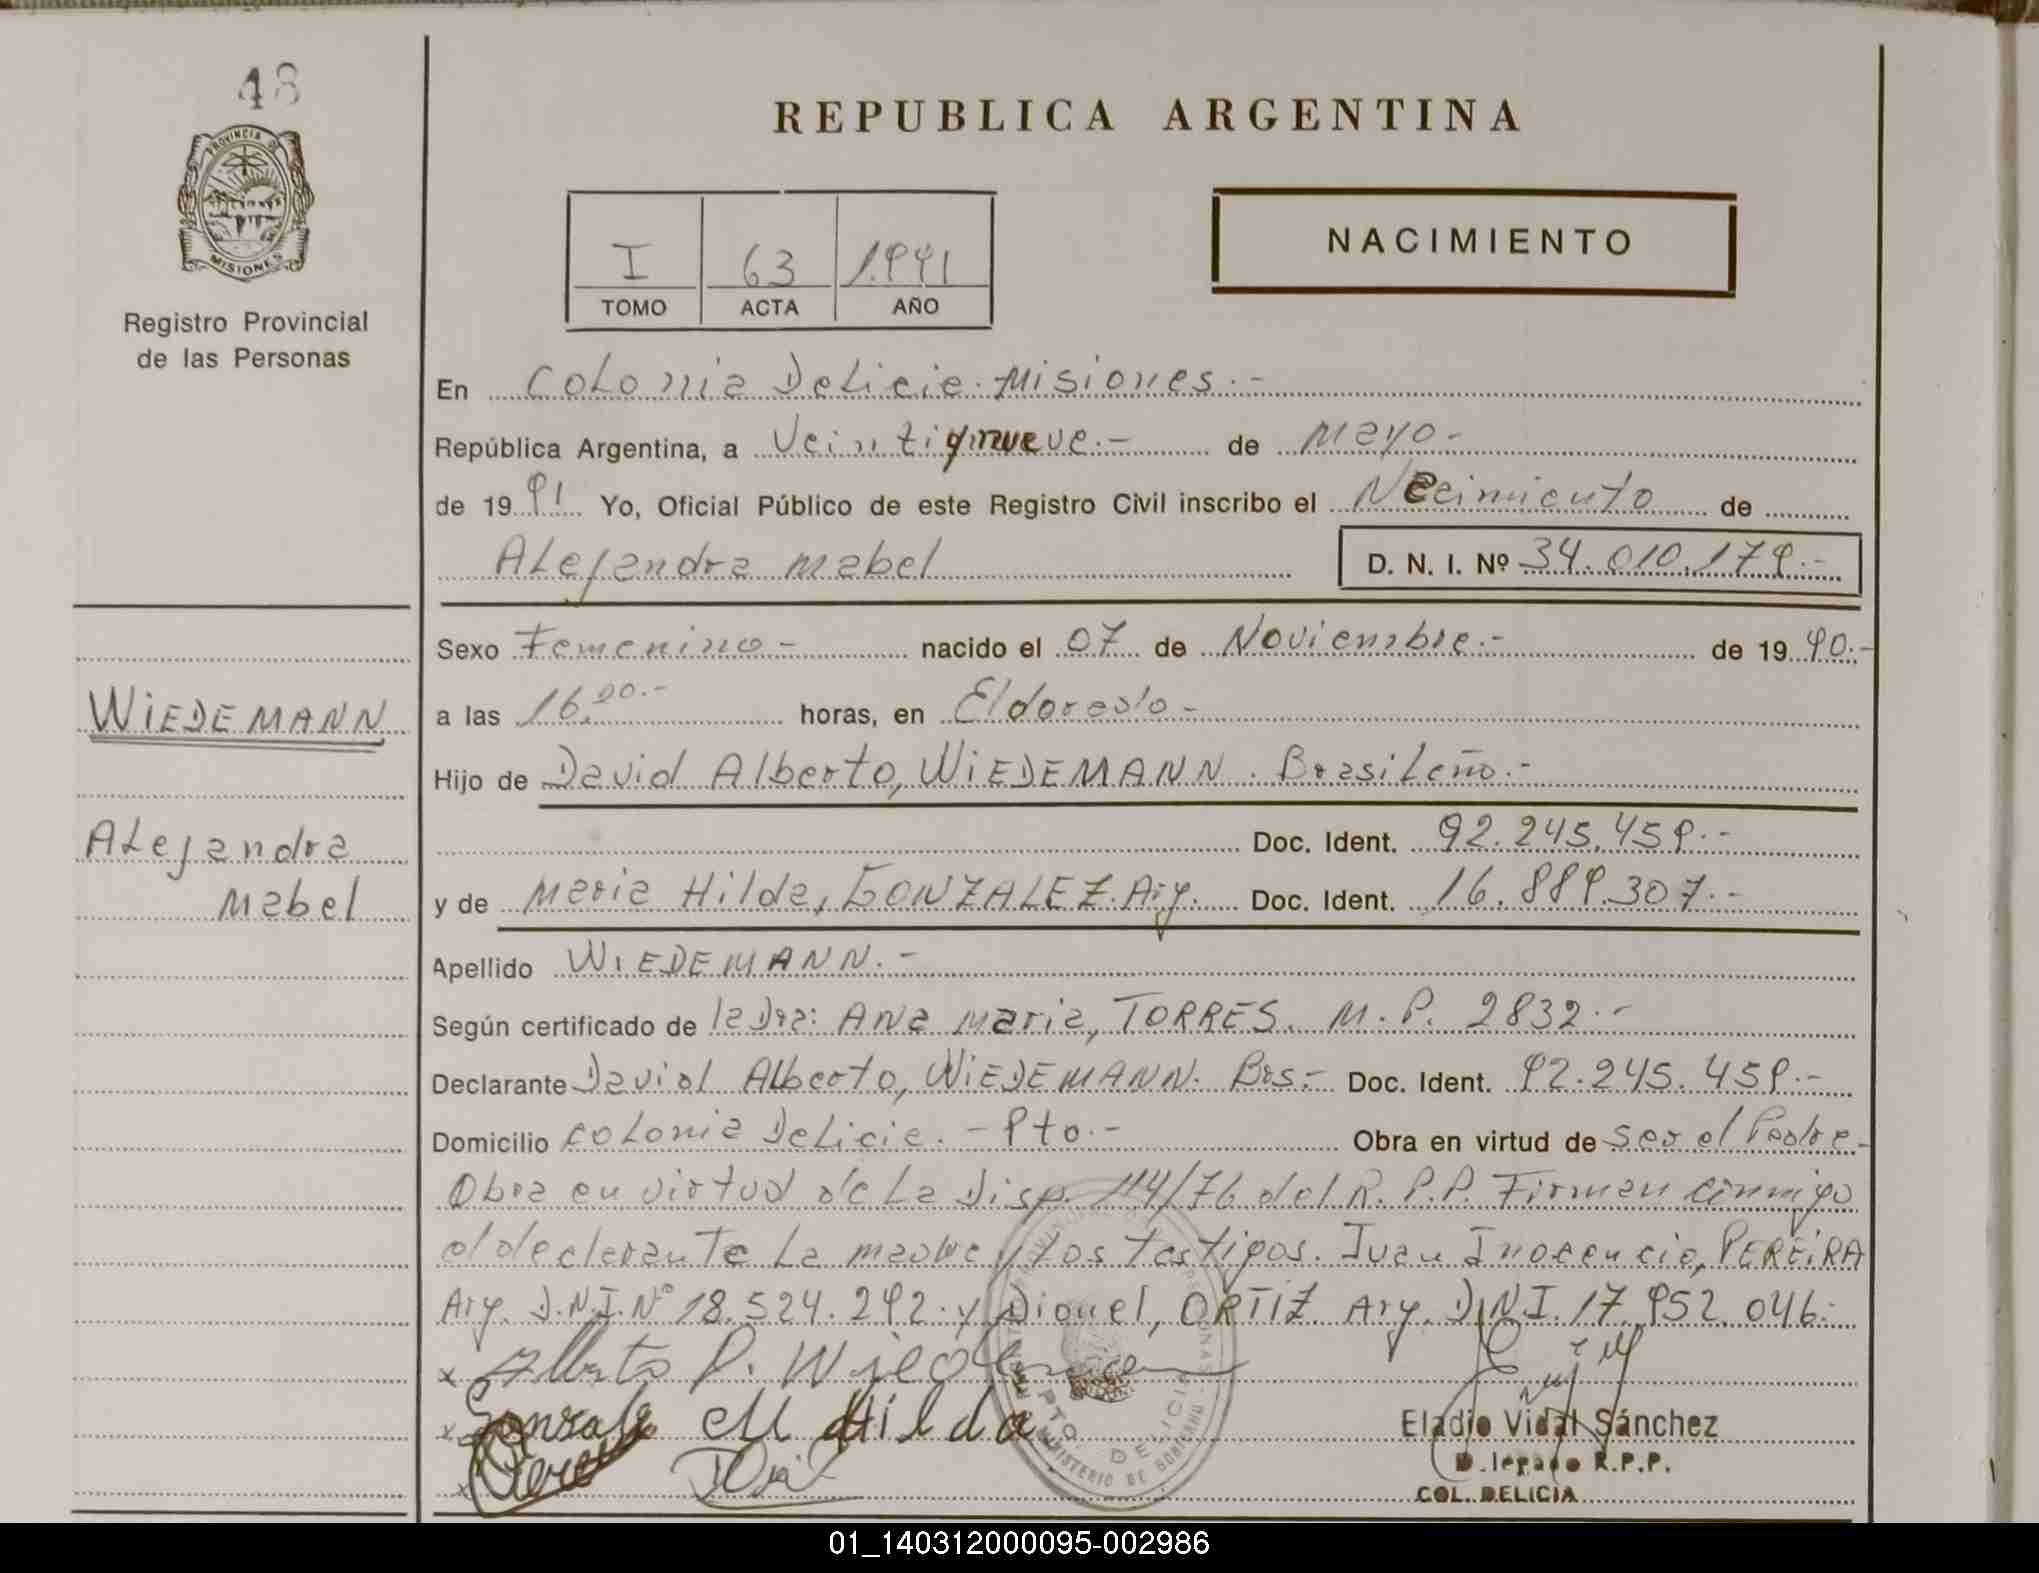 48
REPUBLICA ARGENTINA
PROVINCIA DE
MISIONES
Registro Provincial
de las Personas
I 63 1.991
TOMO ACTA AÑO
NACIMIENTO
En Colonia Delicia. Misiones.-
República Argentina, a Veintinueve.- de Mayo-
de 1991 Yo, Oficial Público de este Registro Civil inscribo el Nacimiento de
Alejandra Mabel D. N. I. Nº 34.010.179.-
Sexo Femenino- nacido el 07 de Noviembre.- de 1990.-
WIEDEMANN
a las 16,00.- horas, en Eldorado-
Hijo de David Alberto, WIEDEMANN. Brasileño.-
Alejandra
Mabel
Doc. Ident. 92.245.459.-
y de Maria Hilda, GONZALEZ. Arg. Doc. Ident. 16.889.307.-
Apellido WIEDEMANN.-
Según certificado de la Dra: Ana Maria, TORRES. M.P. 2832.-
Declarante David Alberto, WIEDEMANN. Bras.- Doc. Ident. 92.245.459.-
Domicilio Colonia Delicia.-Pto.- Obra en virtud de ser el Padre-
Obra en virtud de La Disp. 114/76 del R.P.P. Firman conmigo
el declarante La madre y Los testigos. Juan Inocencio, PEREIRA
Arg. D.N.I.Nº 18.524.292. y Dionel, ORTIZ. Arg. D.N.I. 17.952.046.-
x Alberto D. Wiedemann
x Gonzalez M Hilda
x
PTO. DELICIA
MINISTERIO DE GOBIERNO
Eladio Vidal Sánchez
Delegado R.P.P.
COL. DELICIA
01_140312000095-002986